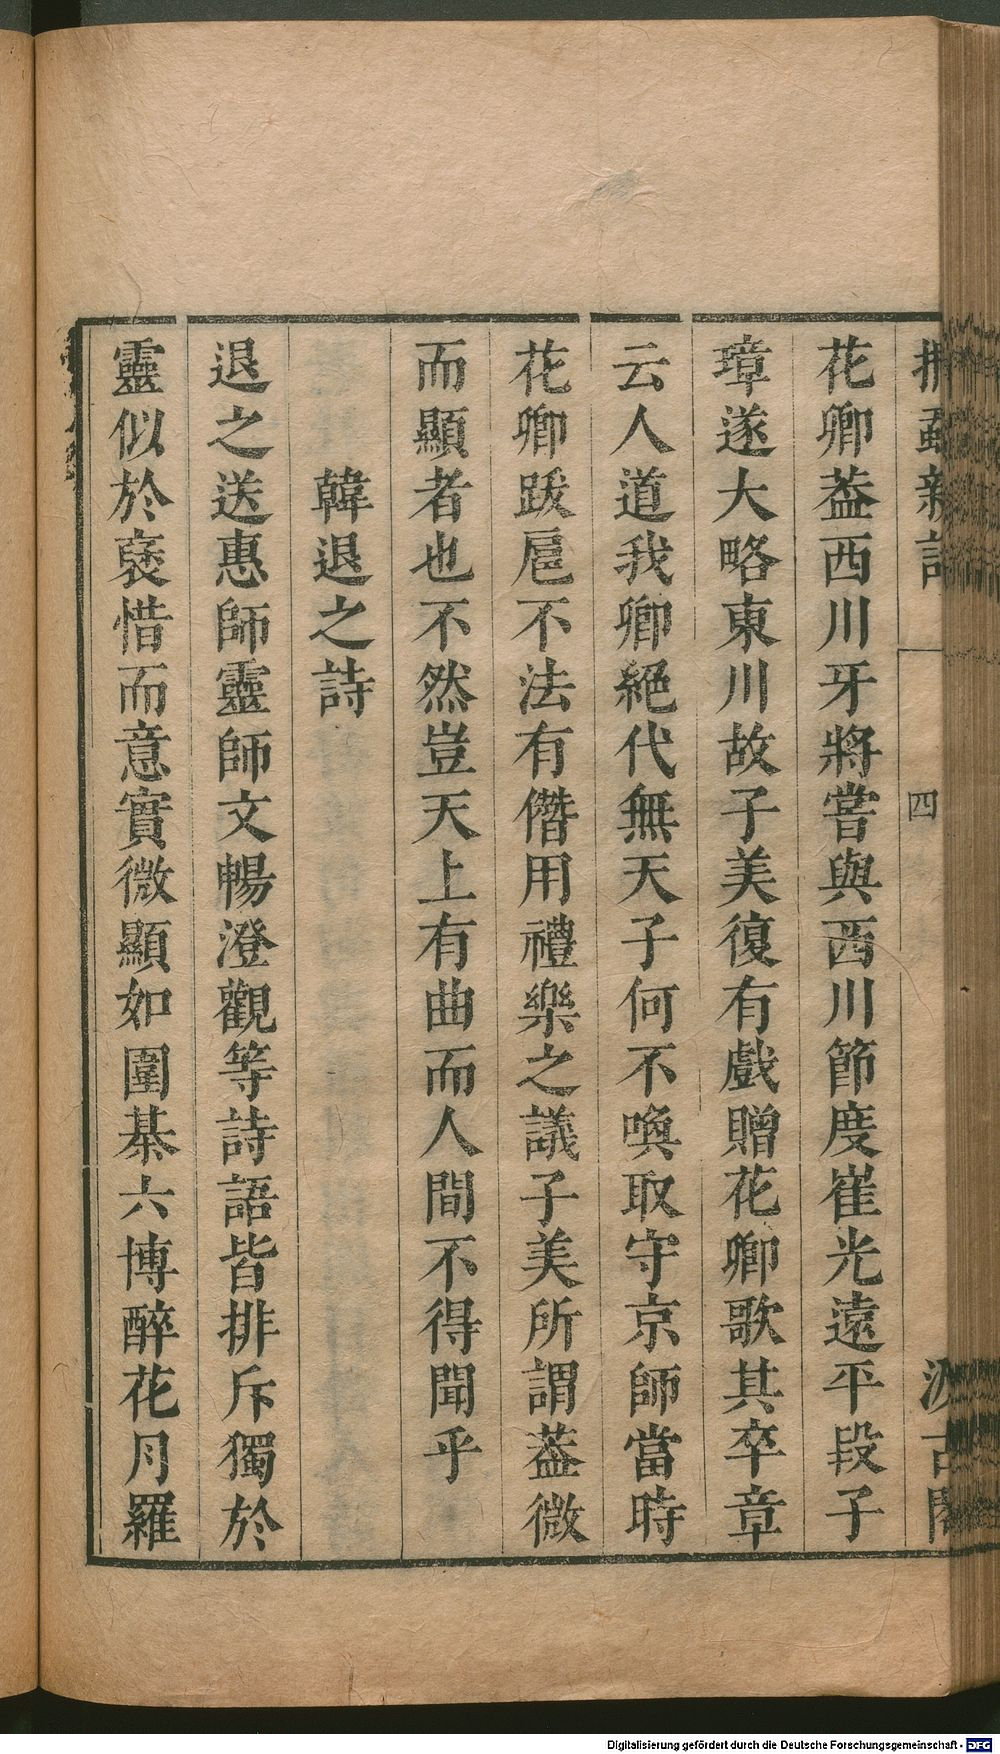 捫蝨新話
四
汲古閣
花卿葢西川牙將嘗與西川節度崔光遠平段子
璋遂大略東川故子美復有戲贈花卿歌其卒章
云人道我卿絕代無天子何不喚取守京師當時
花卿跋扈不法有僭用禮樂之議子美所謂葢微
而顯者也不然豈天上有曲而人間不得聞乎
韓退之詩
退之送惠師靈師文暢澄觀等詩語皆排斥獨於
靈似於褒惜而意實微顯如圍棊六博醉花月羅
Digitalisierung gefördert durch die Deutsche Forschungsgemeinschaft - DFG